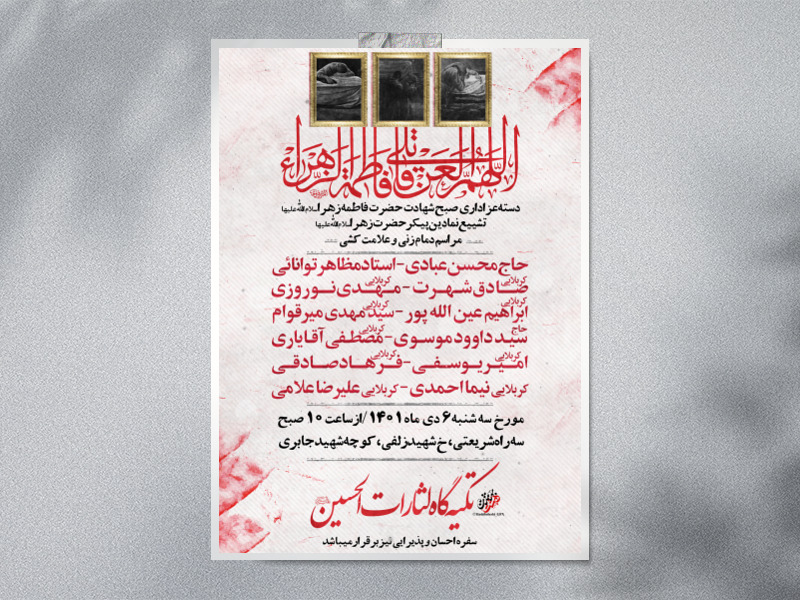 اللهم العن قاتلی فاطمة الزهراء
دسته عزاداری صبح شهادت حضرت فاطمه زهرا سلام الله علیها
تشییع نمادین پیکر حضرت زهرا سلام الله علیها
مراسم دمام زنی و علامت کشی
حاج محسن عبادی - استاد مظاهر توانائی
کربلایی صادق شهرت - کربلایی مهدی نوروزی
کربلایی ابراهیم عین الله پور - کربلایی سید مهدی میرقوام
حاج سید داوود موسوی - کربلایی مصطفی آقایاری
کربلایی امیر یوسفی - کربلایی فرهاد صادقی
کربلایی نیما احمدی - کربلایی علیرضا علامی
مورخ سه شنبه ۶ دی ماه ۱۴۰۱ / از ساعت ۱۰ صبح
سه راه شریعتی، خ شهید زلفی، کوچه شهید جابری
تکیه گاه لثارات الحسین
سفره احسان و پذیرایی نیز برقرار میباشد